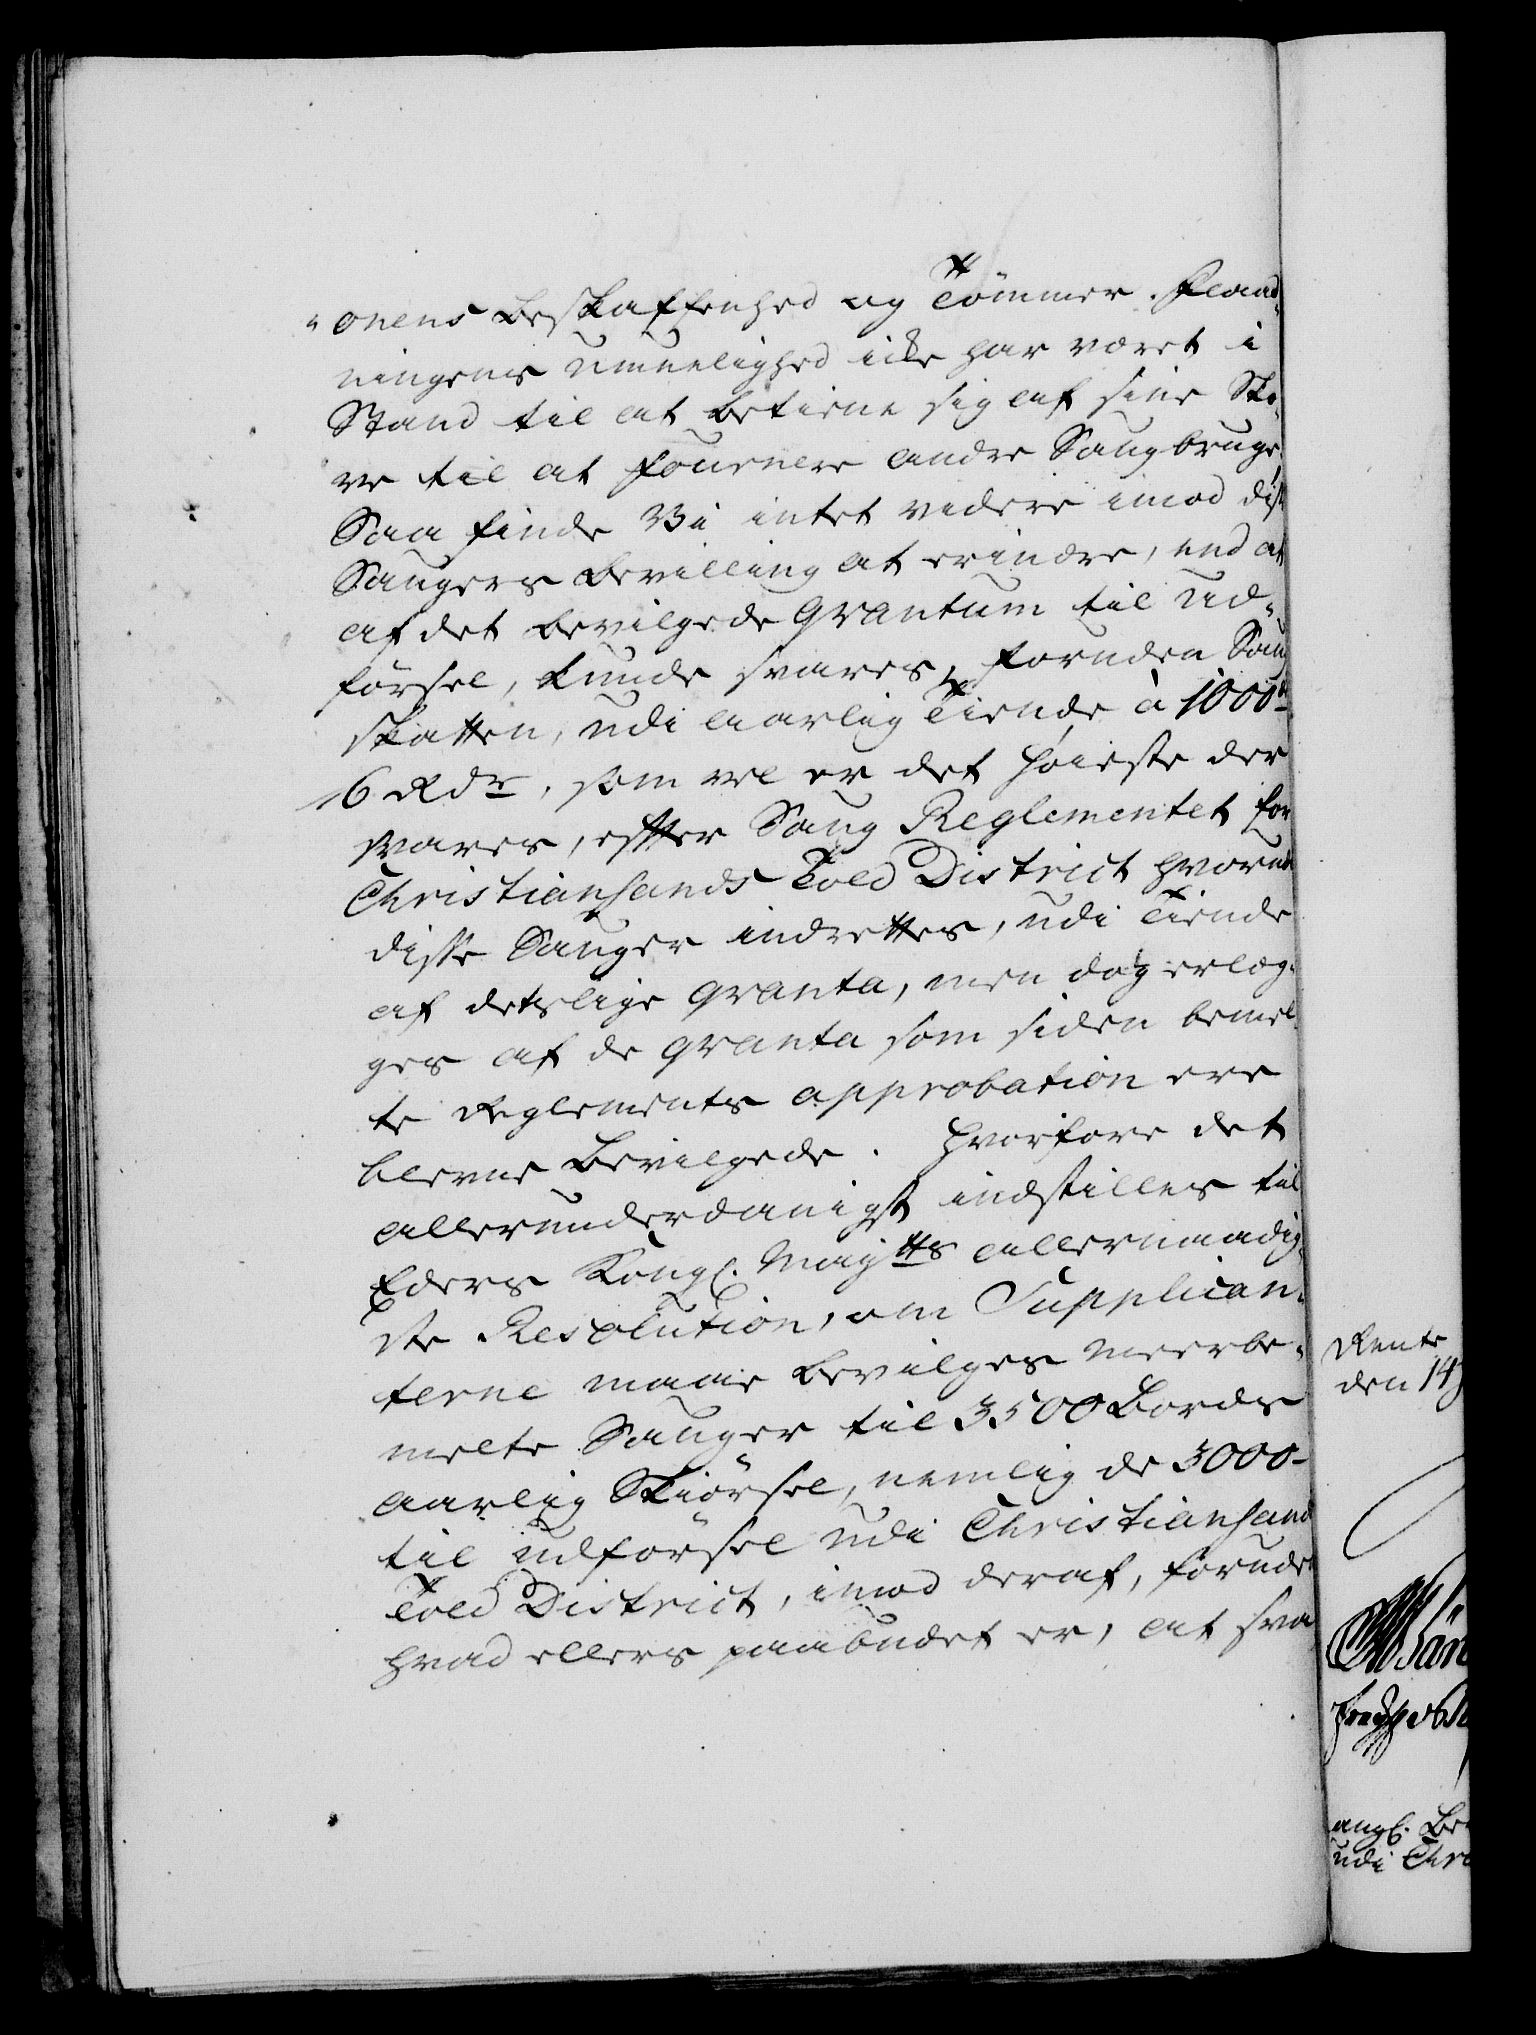 onens Beskaffenhed og Tömmer-Flaad-
ningens Umuelighed icke har været i
Stand til at betiene sig af sine Sko-
ve til at fournere andre Saugbruge,
Saa finde Vi intet videre imod disse
Saugers Bevilling at erindre, end at
af det bevilgede Qvantum til Ud-
försel, kunde svares, foruden Saug
skatten, udi aarlig Tiende à 1000de
6 Rdr, som vel er det höieste der
svares, efter Saug Reglementet for
Christiansands Told District hvorudi
disse Sauger indrettes, udi Tiende
af deslige qvanta, men dog erlæg-
ges af de qvanta som siden bemel-
te Reglements approbation ere
blevne bevilgede. Hvorfore det
allerunderdanigst indstilles til
Eders Kongl. Maytts allernaadig-
ste Resolution, om Supplican-
terne maae bevilges meerbe-
melte Sauger til 3500 Bords
aarlig Skiörsel, nemlig de 3000-
til udförsel udi Christiansand
Told District, imod deraf, foruden
hvad ellers paabudet er, at sva
Rente
den 14
angl. Be
udi Chri